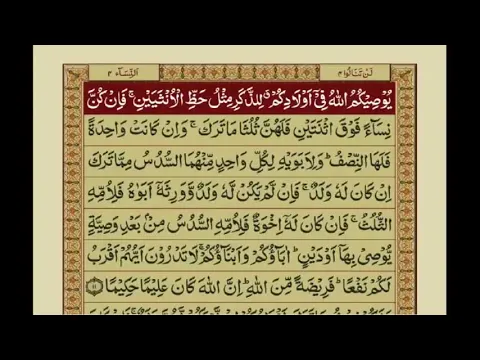 لَنْ تَنَالُوا ۴ اَلنِّسَآء ۴
يُوْصِيْكُمُ اللّٰهُ فِيْٓ اَوْلَادِكُمْ ۗ لِلذَّكَرِ مِثْلُ حَظِّ الْاُنْثَيَيْنِ ۚ فَاِنْ كُنَّ
نِسَآءً فَوْقَ اثْنَتَيْنِ فَلَهُنَّ ثُلُثَا مَا تَرَكَ ۚ وَاِنْ كَانَتْ وَاحِدَةً
فَلَهَا النِّصْفُ ؕ وَلِاَبَوَيْهِ لِكُلِّ وَاحِدٍ مِّنْهُمَا السُّدُسُ مِمَّا تَرَكَ
اِنْ كَانَ لَهٗ وَلَدٌ ۚ فَاِنْ لَّمْ يَكُنْ لَّهٗ وَلَدٌ وَّوَرِثَهٗٓ اَبَوٰهُ فَلِاُمِّهِ
الثُّلُثُ ۚ فَاِنْ كَانَ لَهٗٓ اِخْوَةٌ فَلِاُمِّهِ السُّدُسُ مِنْۢ بَعْدِ وَصِيَّةٍ
يُّوْصِيْ بِهَآ اَوْ دَيْنٍ ؕ اٰبَآؤُكُمْ وَاَبْنَآؤُكُمْ ۚ لَا تَدْرُوْنَ اَيُّهُمْ اَقْرَبُ
لَكُمْ نَفْعًا ؕ فَرِيْضَةً مِّنَ اللّٰهِ ؕ اِنَّ اللّٰهَ كَانَ عَلِيْمًا حَكِيْمًا ۱۱